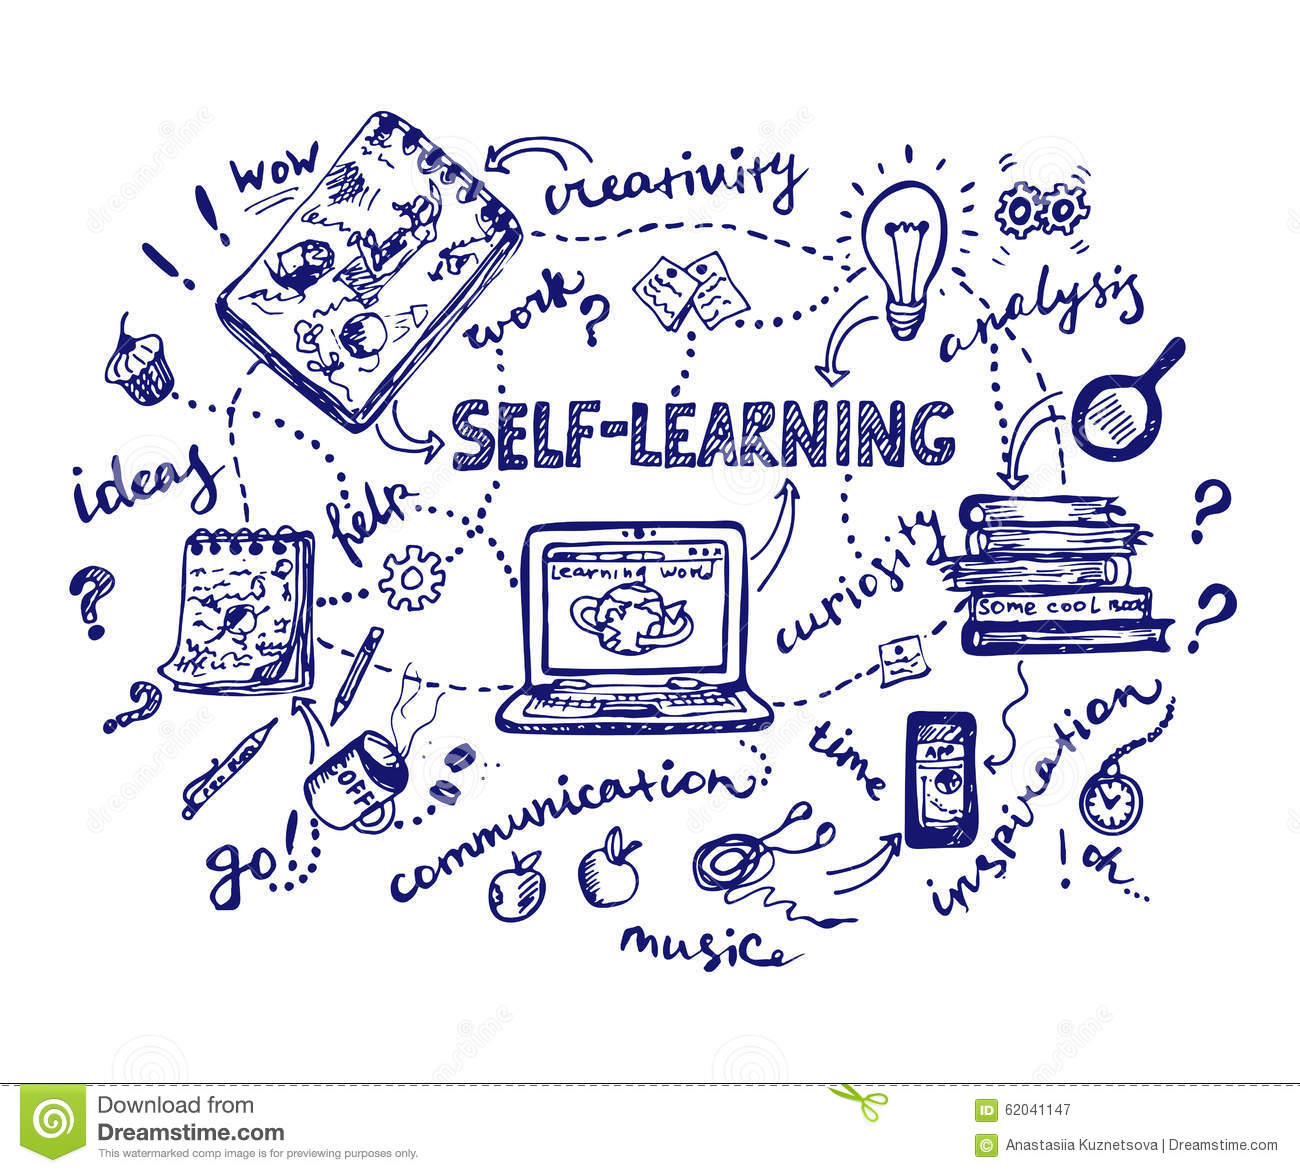 wow
creativity
work
?
analysis
SELF-LEARNING
ideas
help
Learning World
curiosity
?
SOME COOL BOO
?
?
?
time
APP
OFF
inspiration
communication
go!
! oh...
music
Download from
Dreamstime.com
This watermarked comp image is for previewing purposes only.
ID 62041147
© Anastasiia Kuznetsova | Dreamstime.com